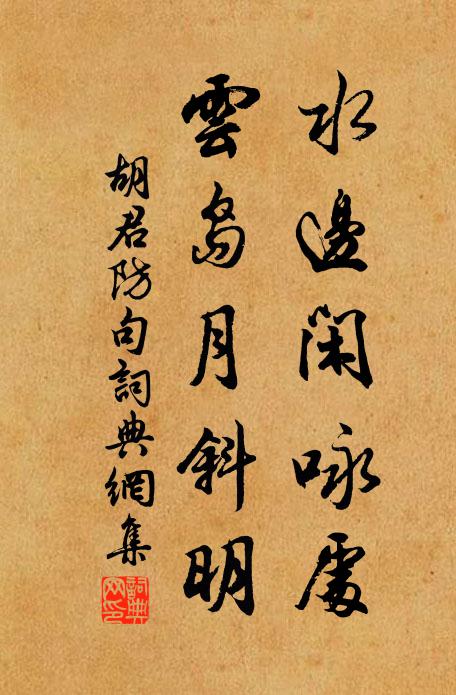 水邊閑咏處
雲島月斜明
胡君防句詞典網集
詞典网印